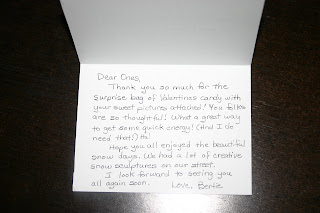 Dear Ones,
Thank you so much for the
surprise bag of Valentines candy with
your sweet pictures attached! You folks
are so thoughtful! What a great way
to get some quick energy! (And I do
need that!) Ha!
Hope you all enjoyed the beautiful
snow days. We had a lot of creative
snow sculptures on our street.
I look forward to seeing you
all again soon.
Love, Bertie